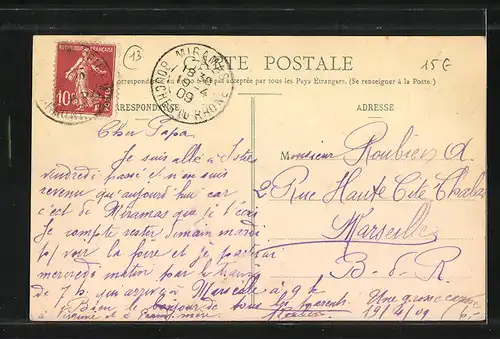 REPUBLIQUE FRANÇAISE
10c
13
MIRAMAS
18 30
19 - 4
09
BOUCHES DU RHONE
CARTE POSTALE
15G
pas acceptée par tous les Pays Étrangers. (Se renseigner à la Poste.)
CORRESPONDANCE
ADRESSE
Cher Papa
Je suis allé à Istre
vendredi passé et n'en suis
revenu que aujourd'hui car
c'est de Miramas que je t'écris
Je compte rester demain mardi
pr voir la foire et je partirai
mercredi matin par le train
de 7 h. qui arrive à Marseille à 9 h
Bien le bonjour de tous les parents
à Virginie et à Grand mère
Monsieur Roubien A.
2 Rue Haute Cité Chalas
Marseille
B-d-R
Une grosse caresse
19/4/09